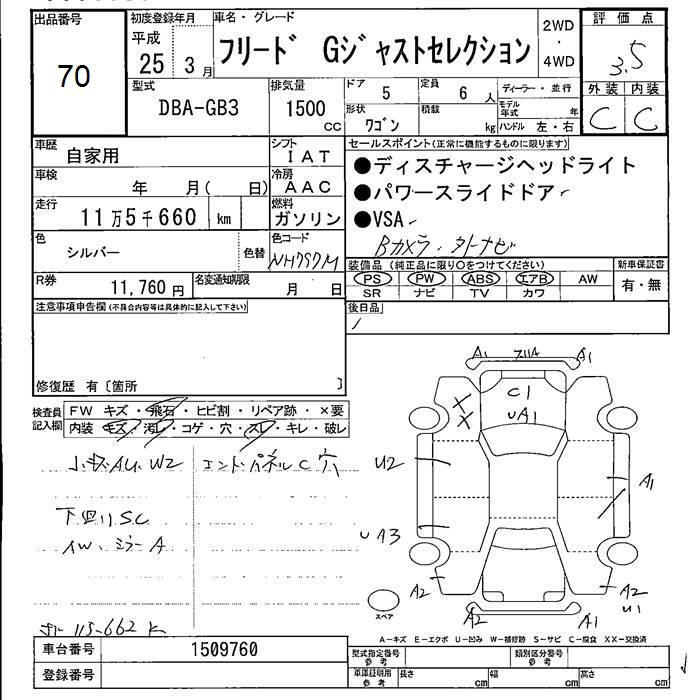 出品番号
70
初度登録年月
平成
25 3月
車名・グレード
フリード Gジャストセレクション
2WD
・
4WD
評価点
3.5
型式
DBA-GB3
排気量
1500
CC
ドア
5
定員
6 人
ディーラー・並行
外装 内装
C C
形状
ワゴン
積載
kg
モデル年式 年
ハンドル 左・右
車歴
自家用
シフト
IAT
車検
年 月( 日)
冷房
AAC
走行
11万5千660 km
燃料
ガソリン
色
シルバー
色替
色コード
NH797M
R券
11,760円
名変通知期限
月 日
セールスポイント(正常に機能するものに限ります)
●ディスチャージヘッドライト
●パワースライドドア
●VSA
Bカメラ・外ナビ
装備品 (純正品に限り○をつけてください)
PS PW ABS エアB AW
SR ナビ TV カワ
新車保証書
有・無
後日品
注意事項申告欄(不具合内容等は具体的に記入して下さい)
修復歴 有〔箇所 〕
検査員記入欄
FW キズ・飛石・ヒビ割・リペア跡・×要
内装 キズ・汚れ・コゲ・穴・スレ・キレ・破レ
小キズAU、W2
エンドパネルC 穴
下回りSC
AW、ミラーA
115-662 K
A1 フリA A1
C1
UA1
U2
A1
UA3
A2
A2
U1
A2
A1
スペア
A-キズ E-エクボ U-凹み W-補修跡 S-サビ C-腐食 XX-交換済
車台番号
1509760
登録番号
型式指定番号
参考
類別区分番号
参考
車庫証明用
参考
長さ cm
幅 cm
高さ cm